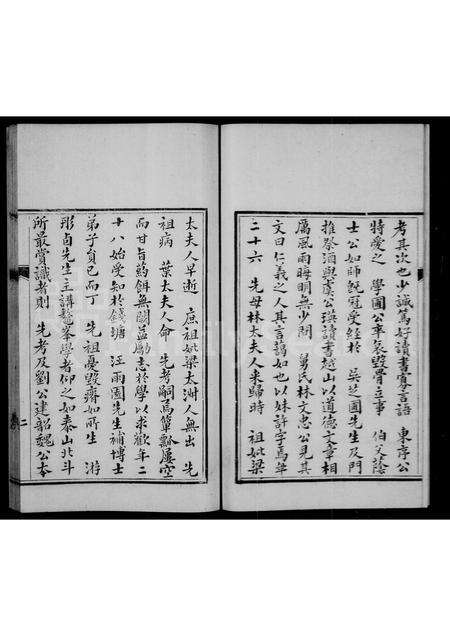 考其次也少誠篤好讀書寡言語 東序公
特愛之 學圃公卒哀毀骨立事 伯父蔭
士公如師旣冠受經於 吳芝圃先生及門
推祭酒與虞公瑛讀書越山以道德文章相
厲風雨晦明無少間 舅氏林文忠公見其
文曰仁義之人其言藹如也以妹許字焉年
二十六 先母林太夫人來歸時 祖妣梁
太夫人早逝 庶祖妣梁太淑人無出 先
祖病 葉太夫人命 先考嗣焉簞瓢屢空
而甘旨葯餌無闕益勵志於學以求歡年二
十八始受知於錢塘 汪雨園先生補博士
弟子貟已而丁 先祖憂毀瘠如所生 游
彤卣先生主講鼇峯學者仰之如泰山北斗
所最賞識者則 先考及劉公建韶魏公本
二